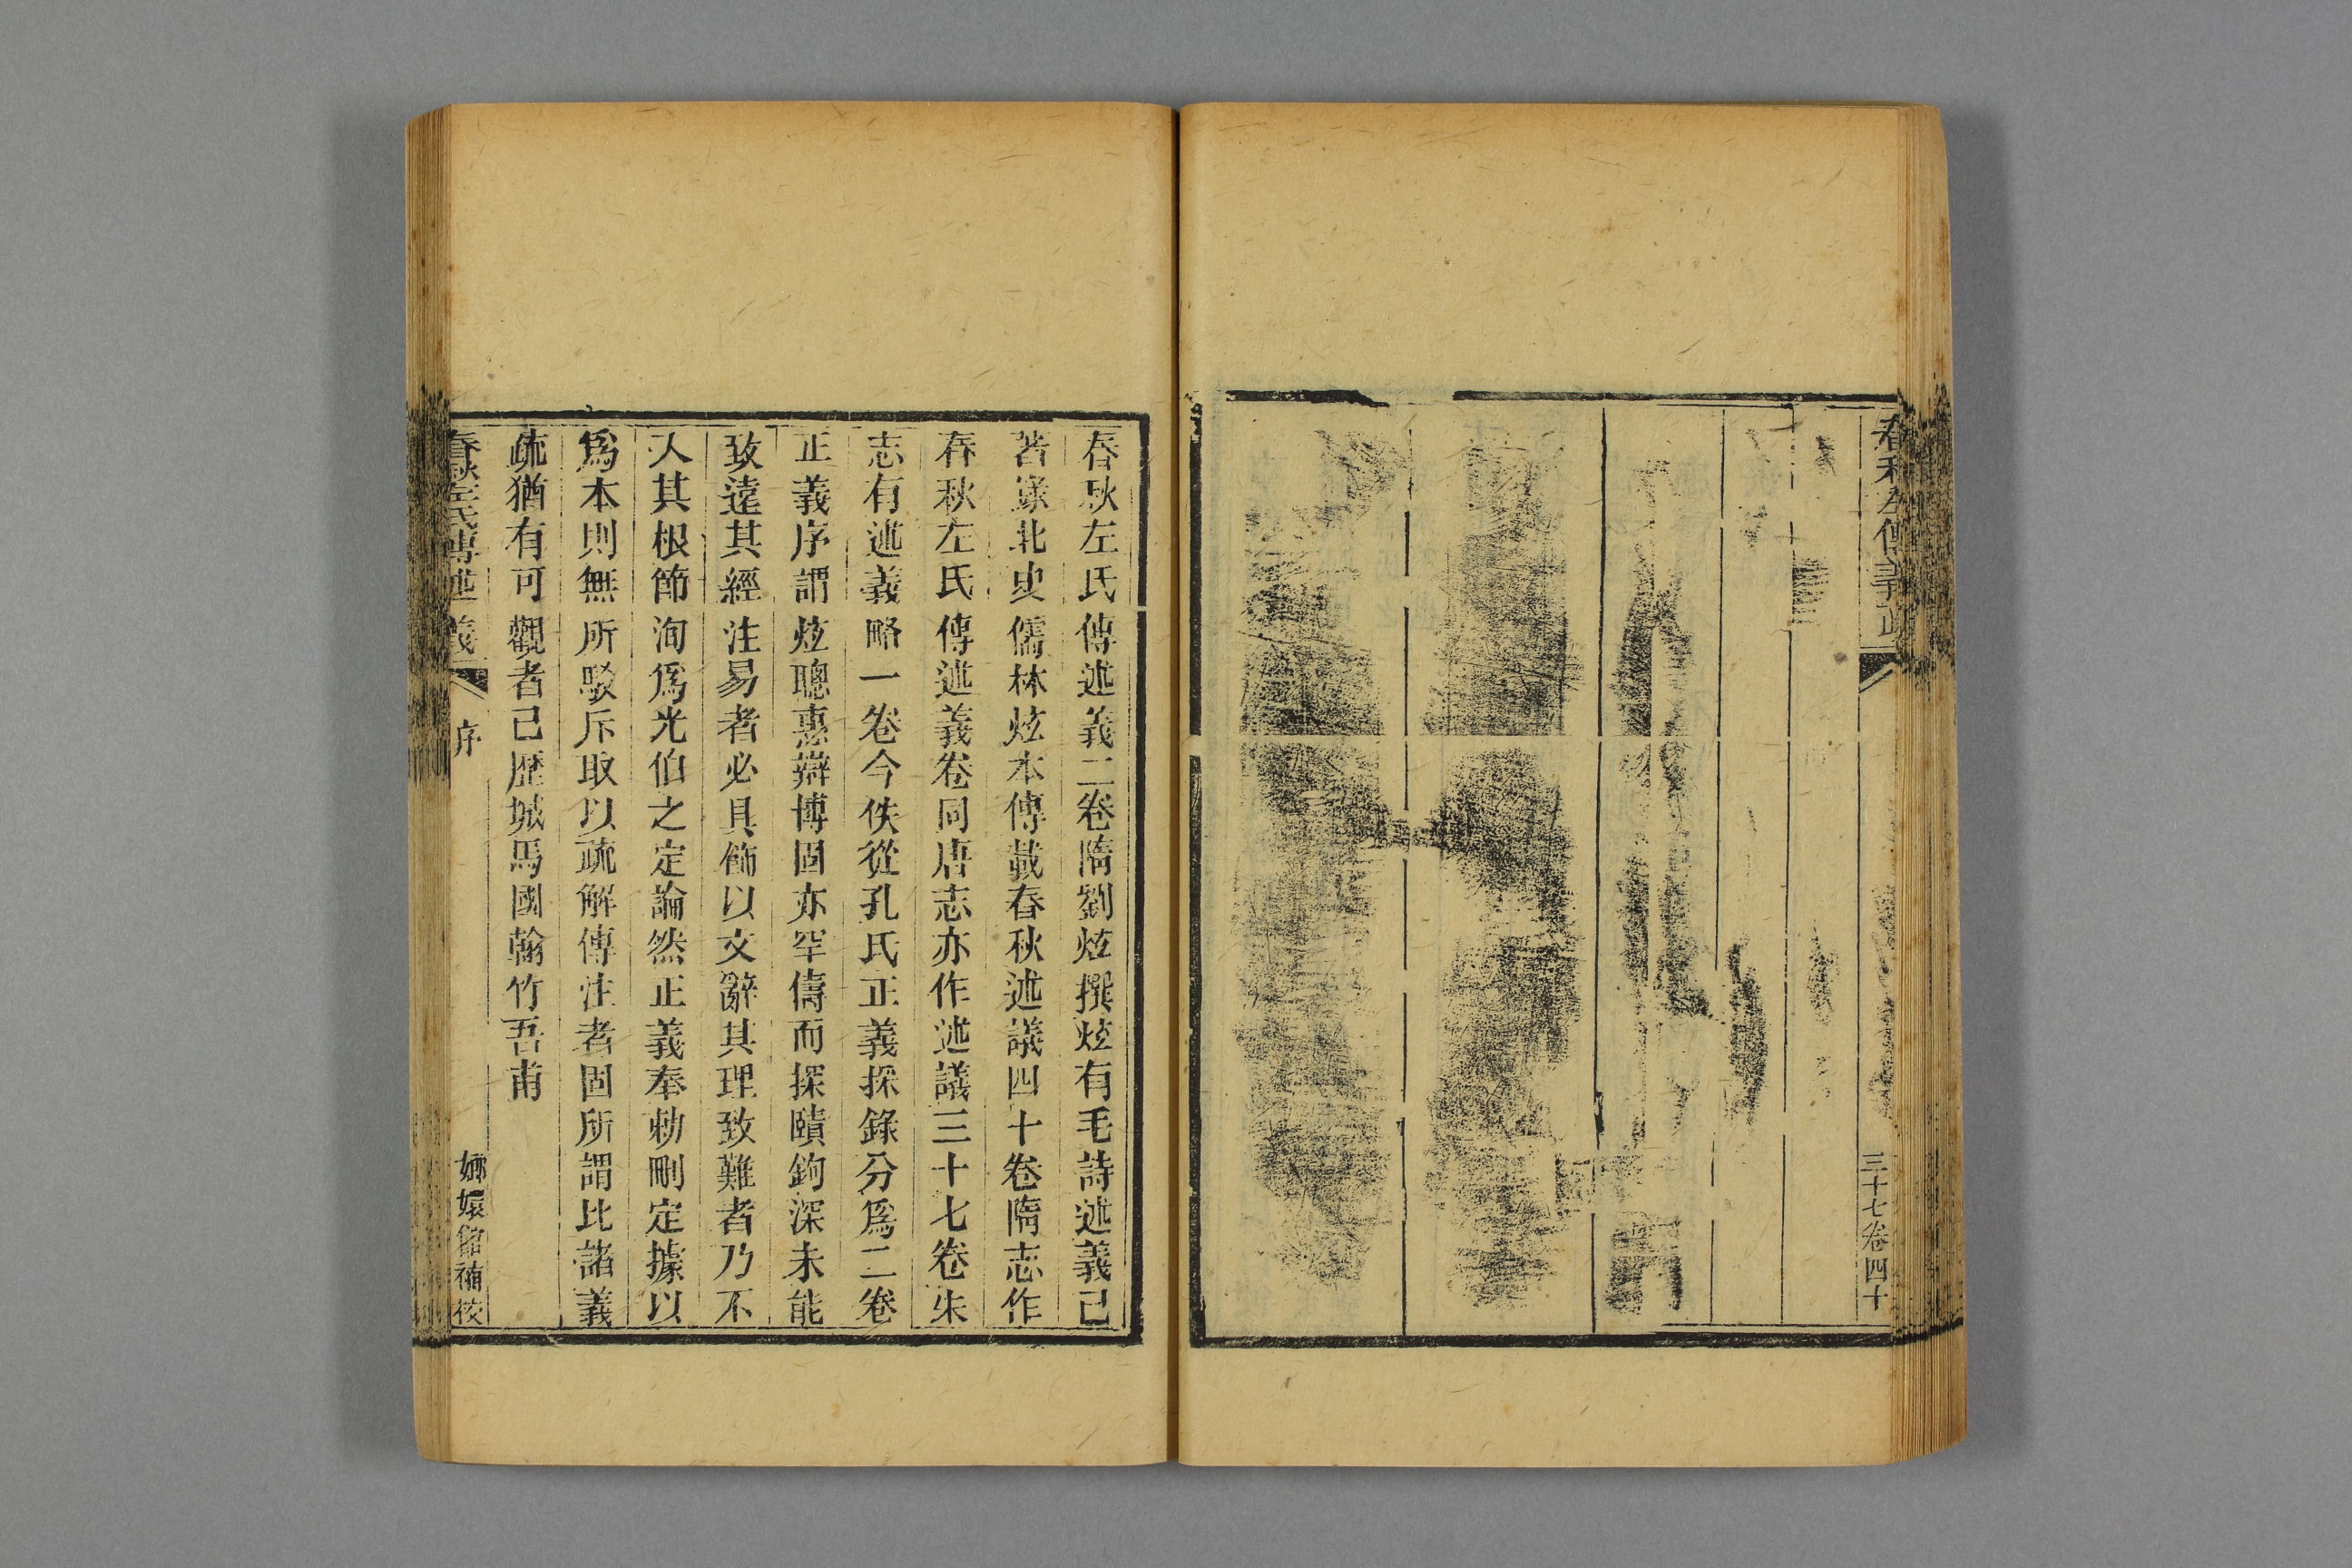 春秋左傳義疏
三十七卷四十
春秋左氏傳述義二卷隋劉炫撰炫有毛詩述義已
著錄北史儒林炫本傳載春秋述議四十卷隋志作
春秋左氏傳述義卷同唐志亦作述議三十七卷宋
志有述義略一卷今佚從孔氏正義採錄分爲二卷
正義序謂炫聰惠辯博固亦罕儔而探賾鉤深未能
致遠其經注易者必具飾以文辭其理致難者乃不
入其根節洵爲光伯之定論然正義奉勅刪定據以
爲本則無所駁斥取以疏解傳注者固所謂比諸義
疏猶有可觀者已歷城馬國翰竹吾甫
春秋左氏傳述義
序
嫏嬛館補校